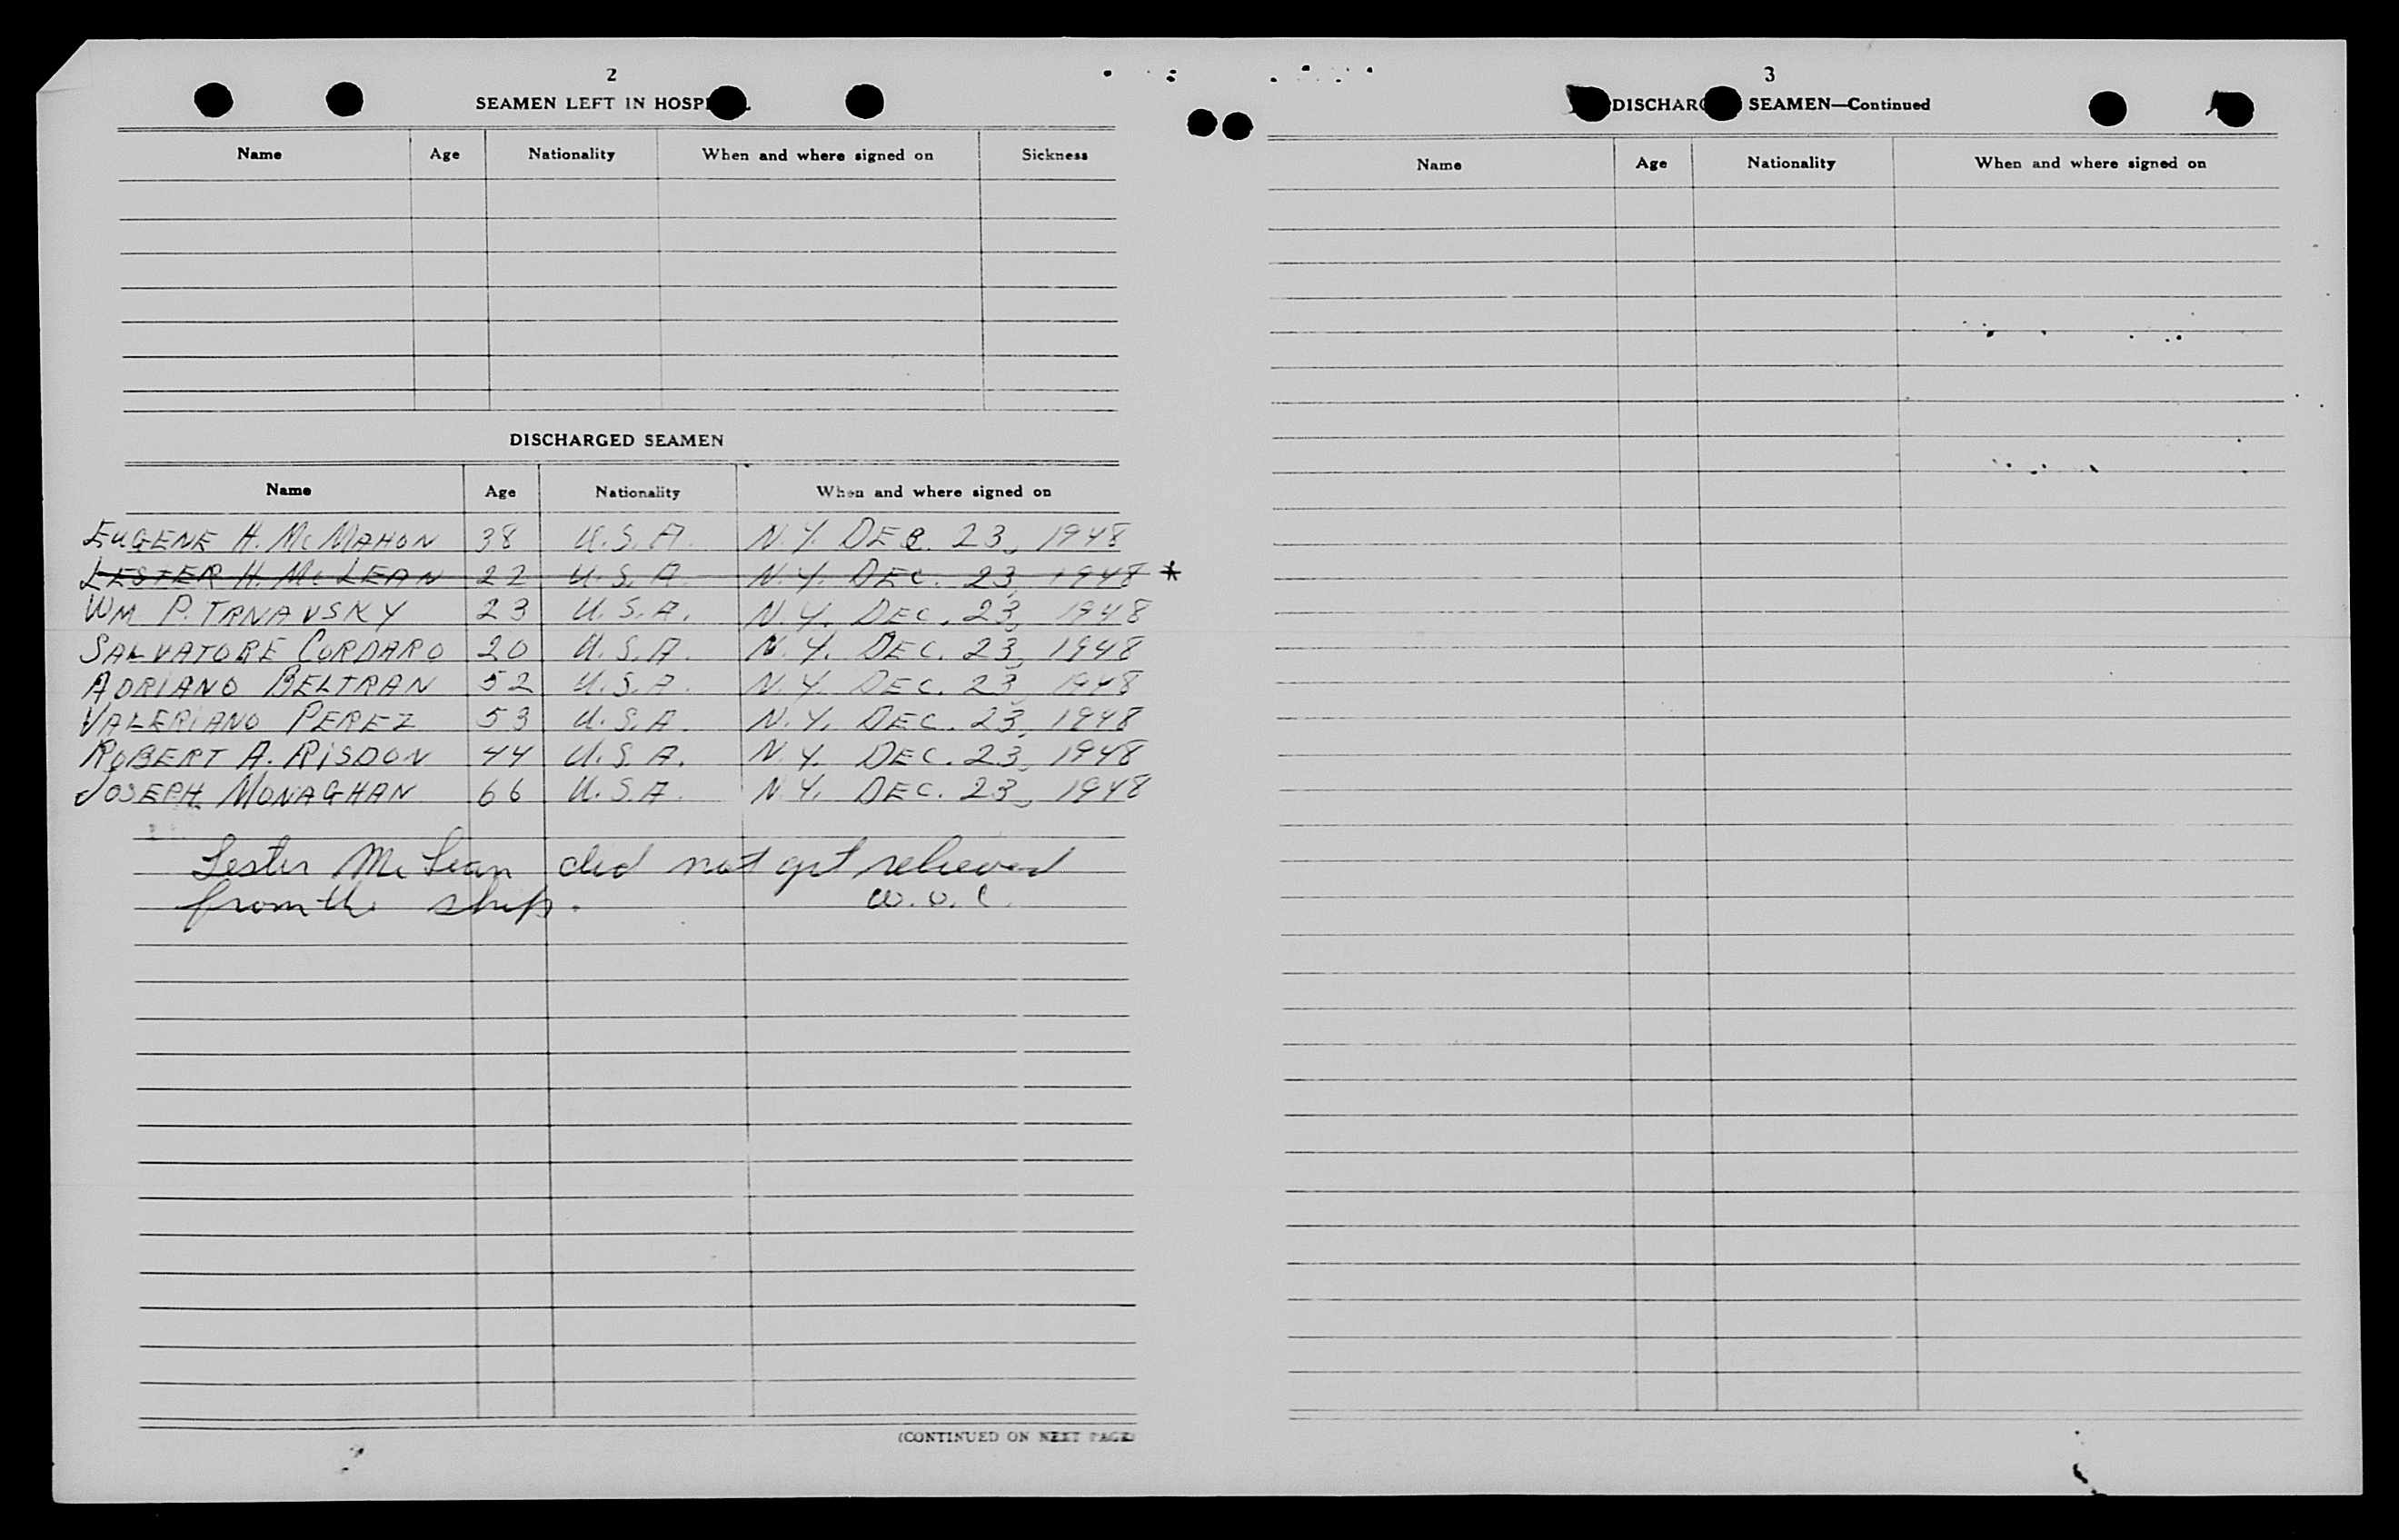 2
SEAMEN LEFT IN HOSP
Name Age Nationality When and where signed on Sickness
DISCHARGED SEAMEN
Name Age Nationality When and where signed on
EUGENE H. MCMAHON 38 U.S.A. N.Y. DEC. 23, 1948
LESTER H. MCLEAN 22 U.S.A. N.Y. DEC. 23, 1948 *
WM P. TRNAVSKY 23 U.S.A. N.Y. DEC. 23, 1948
SALVATORE CORDARO 20 U.S.A. N.Y. DEC. 23, 1948
ADRIANO BELTRAN 52 U.S.A. N.Y. DEC. 23, 1948
VALERIANO PEREZ 53 U.S.A. N.Y. DEC. 23, 1948
ROBERT A. RISDON 44 U.S.A. N.Y. DEC. 23, 1948
JOSEPH MONAGHAN 66 U.S.A. N.Y. DEC. 23, 1948
Lester McLean did not get relieved
from the ship.
(CONTINUED ON NEXT PAGE)
3
DISCHAR SEAMEN—Continued
Name Age Nationality When and where signed on